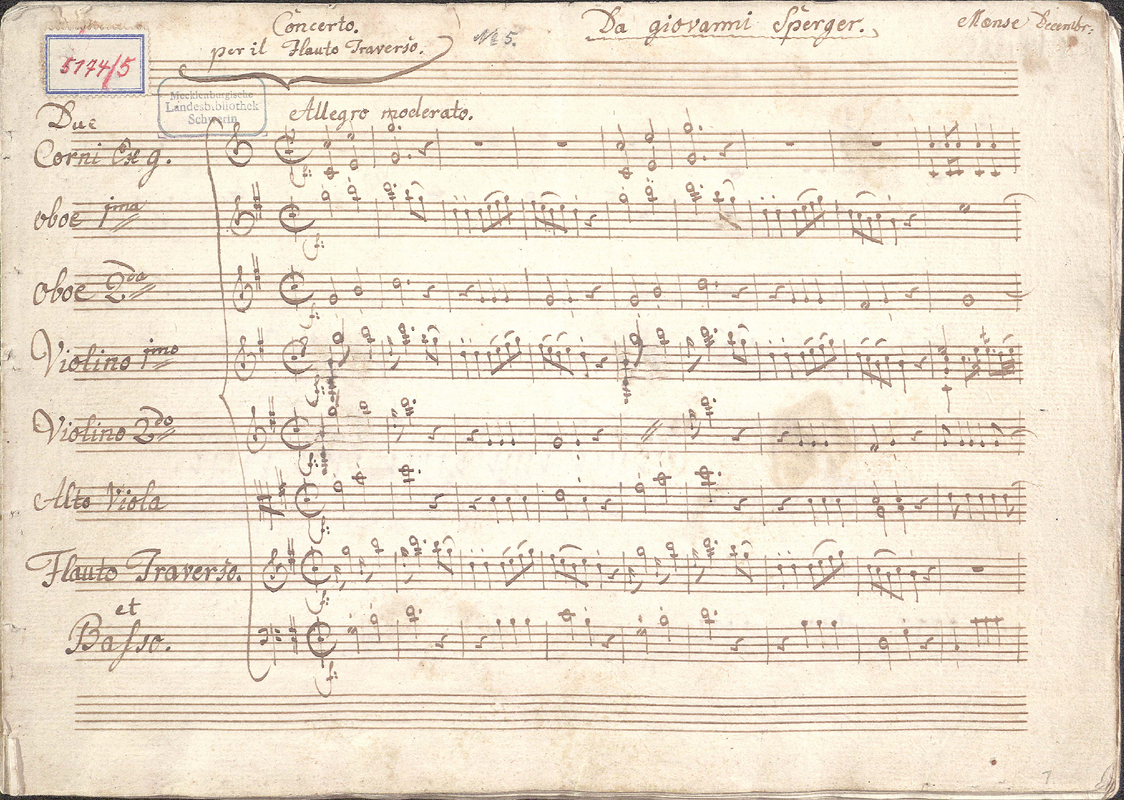 Concerto.
per il Flauto Traverso.
No 5.
Da giovanni Sperger.
Mense Decembr:
5174/5
Mecklenburgische
Landesbibliothek
Schwerin
Allegro moderato.
Due
Corni Ex g.
oboe 1ma
oboe 2da
Violino 1mo
Violino 2do
Alto Viola
Flauto Traverso.
et
Basso.